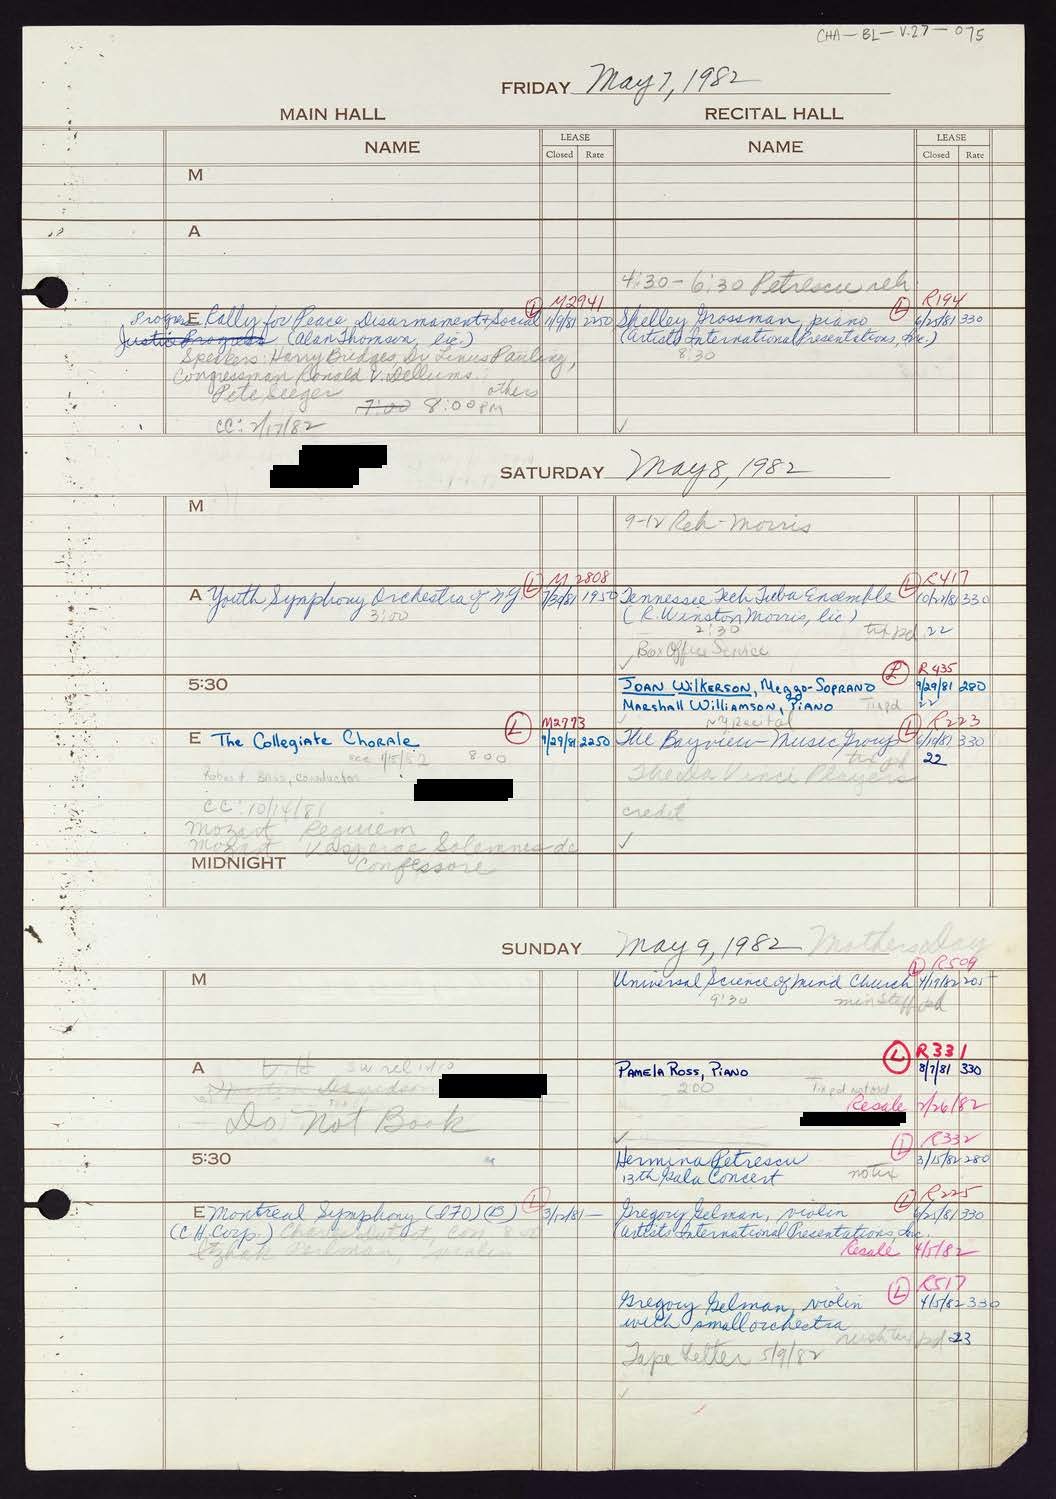 CHA-BL-V.27-075
FRIDAY May 7, 1982
MAIN HALL RECITAL HALL
NAME LEASE Closed Rate NAME LEASE Closed Rate
M
A
4:30 - 6:30 Petrescu reh.
L M2941 L R194
Progress E Rally for Peace, Disarmament & Social 1/9/81 2250 Shelley Grossman, piano 6/25/81 330
Justice Progress (Alan Thomson, lic.) (Artists International Presentations, Inc.)
Speakers: Harry Bridges, Dr. Linus Pauling, 8:30
Congressman Ronald V. Dellums.
Pete Seeger others
7:00 8:00 PM
CC: 2/17/82
SATURDAY May 8, 1982
M
9-12 Reh-Morris
L M 2808 L R417
A Youth Symphony Orchestra of NY 1950 Tennessee Tech Tuba Ensemble 10/21/81 330
3:00 (R. Winston Morris, lic)
2:30 tix pd 22
Box Office Service
L R435
5:30 Joan Wilkerson, Mezzo-Soprano 9/29/81 280
Marshall Williamson, Piano Tix pd 22
NY Recital
L M2773 L R223
E The Collegiate Chorale 9/29/81 2250 The Bayview Music Group 330
8:00 tix pd 22
Robert Bass, conductor The Da Vinci Players
CC: 10/14/81 credit
Mozart Requiem
Mozart Vesperae Solennes de
MIDNIGHT Confessore
SUNDAY May 9, 1982 Mothers Day
L R509
M Universal Science of Mind Church 4/19/82 205
9:30 min staff pd
L R331
A Pamela Ross, Piano 8/7/81 330
2:00 Tix pd
Do Not Book Resale 2/26/82
L R332
5:30 Hermina Petrescu 3/15/82 280
13th Gala Concert notix
L L R225
E Montreal Symphony (IFO) (B) 3/12/81 — Gregory Gelman, violin 6/25/81 330
(C.H. Corp.) Charles Dutoit, Con. 8:00 (Artists International Presentations, Inc.
Itzhak Perlman, violin Resale 4/5/82
L R517
Gregory Gelman, violin 4/5/82 330
with small orchestra
pd 23
Tape Letter 5/9/82